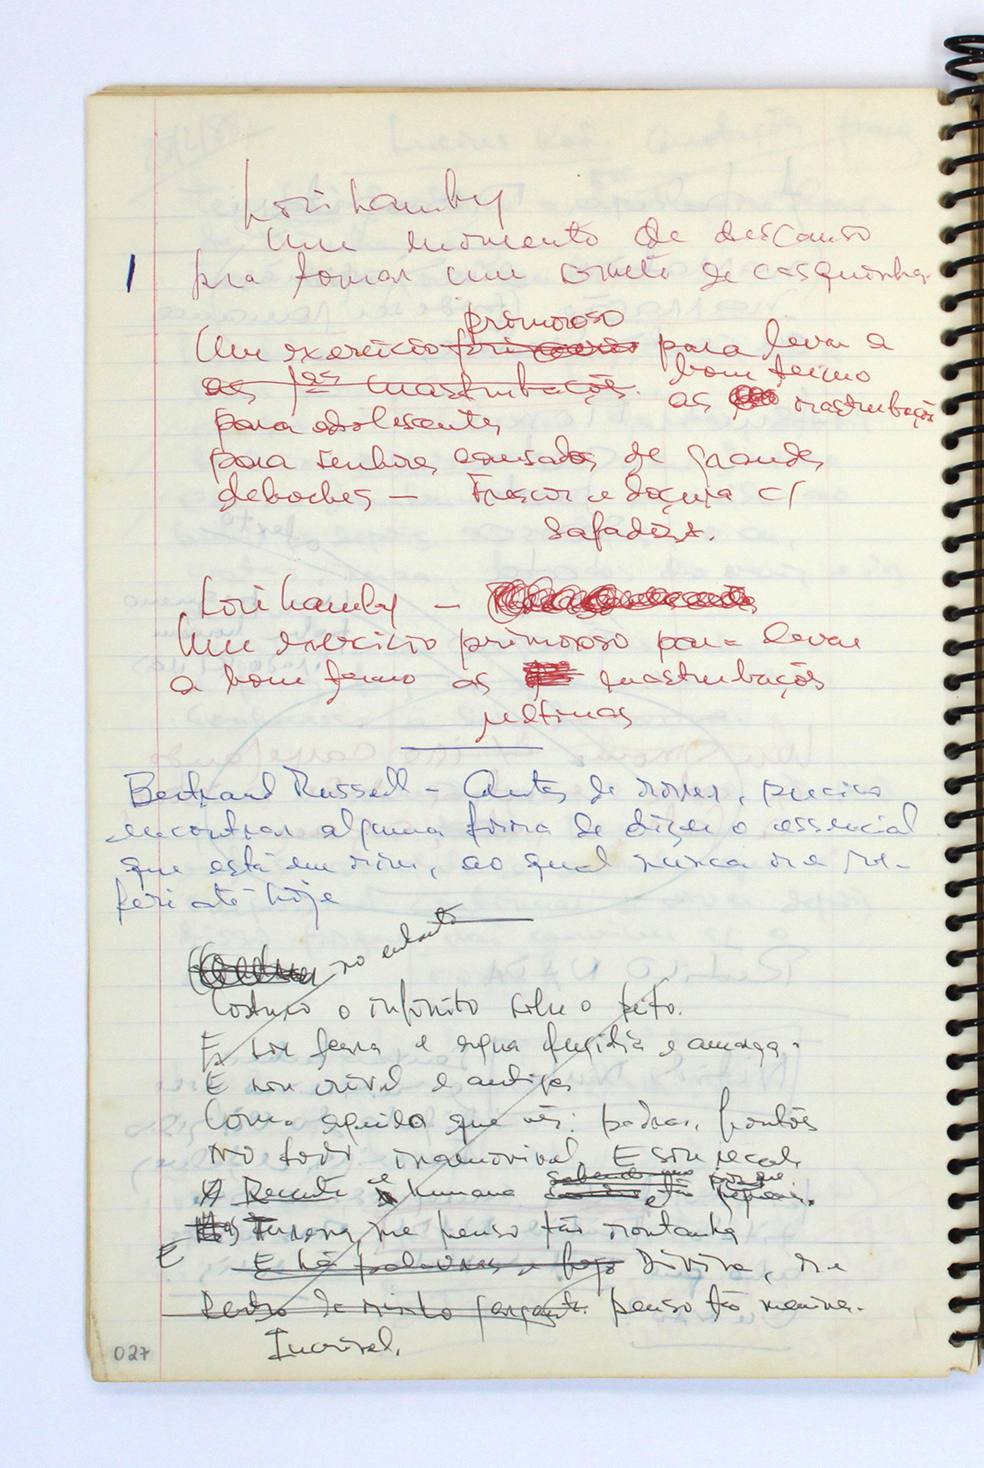 Lori Lamby
Um momento de descanso
pra tomar um sorvete de casquinha.
primoroso
Um exercício para levar a
bom termo
as 1as masturbações. as mastrubações
para adolescentes
para senhores cansados de grandes
deboches — Frescor e doçura c/
safadeza.
Lori Lamby —
Um exercício primoroso para levar
a bom termo as mastrubações
matinas
Bertrand Russell - Antes de morrer, preciso
encontrar alguma forma de dizer o essencial
que está em mim, ao qual nunca me re-
feri até hoje
no entanto
Costuro o infinito sobre o peito.
E sou terra e água fugidia e amarga.
E sou crível e antiga
Como aquilo que vês: pedras, frontões
No todo inamovível. E sou recente
e humana
me penso tão montanha
E
E há palavras e fogo Divina, me
dentro da minha garganta. penso tão menina.
Incrível.
027